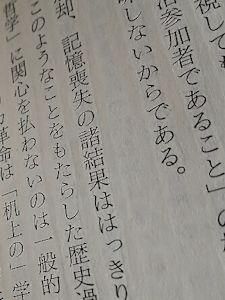 視しても
治参加者であること」の
味しないからである。
却、記憶喪失の諸結果ははっきり
このようなことをもたらした歴史過
哲学」に関心を払わないのは一般的
革命は「机上の」学